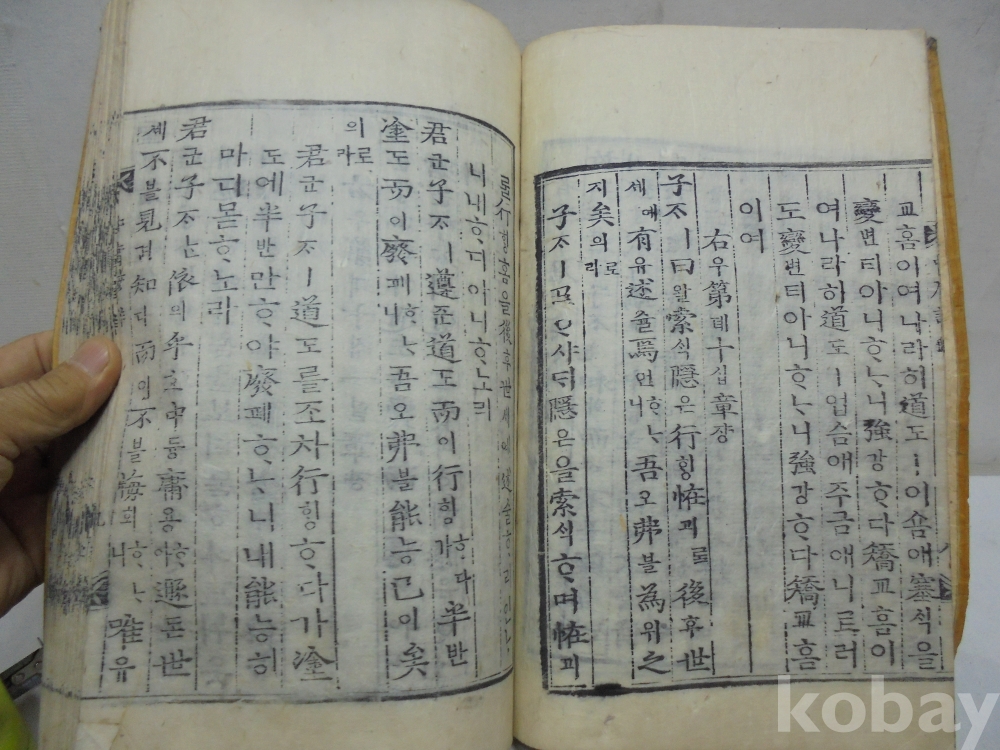 교홈이여나라히道도ㅣ이숌애塞ᄉᆡᆨ을
變변티아니ᄒᆞᄂᆞ니強강ᄒᆞ다矯교홈이
여나라히道도ㅣ업슴애주금애니르러
도變변티아니ᄒᆞᄂᆞ니強강ᄒᆞ다矯교홈
이여
右우第뎨十십章쟝
子ᄌᆞㅣ曰왈索ᄉᆡᆨ隱은行ᄒᆡᆼ怪괴를後후世
셰애有유述슐焉언ᄒᆞᄂᆞ니吾오弗불為위之
지矣의로라
子ᄌᆞㅣᄀᆞᆯᄋᆞ샤ᄃᆡ隱은을索ᄉᆡᆨᄒᆞ며怪괴
를行ᄒᆡᆼ홈을後후世셰에述슐ᄒᆞ리인ᄂᆞ
니내ᄒᆞ디아니ᄒᆞ노라
君군子ᄌᆞㅣ遵쥰道도而이行ᄒᆡᆼᄒᆞ다가半반
塗도而이廢폐ᄒᆞᄂᆞ니吾오弗불能능已이矣
의로라
君군子ᄌᆞㅣ道도를조차行ᄒᆡᆼᄒᆞ다가塗
도에半반만ᄒᆞ야廢폐ᄒᆞᄂᆞ니내能능히
마디몯ᄒᆞ노라
君군子ᄌᆞᄂᆞᆫ依의乎호中듕庸용ᄒᆞ야遯돈世
셰不불見견知디而이不불悔회ᄒᆞᄂᆞ니唯유
kobay